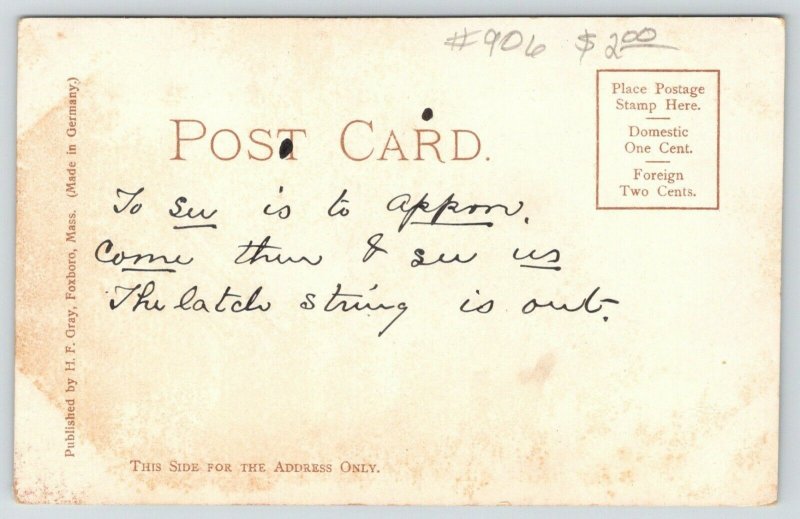 #906 $2.00
Place Postage
Stamp Here.
Domestic
One Cent.
Foreign
Two Cents.
POST CARD.
To see is to approve.
Come then & see us
The latch string is out.
Published by H. F. Gray, Foxboro, Mass. (Made in Germany.)
THIS SIDE FOR THE ADDRESS ONLY.